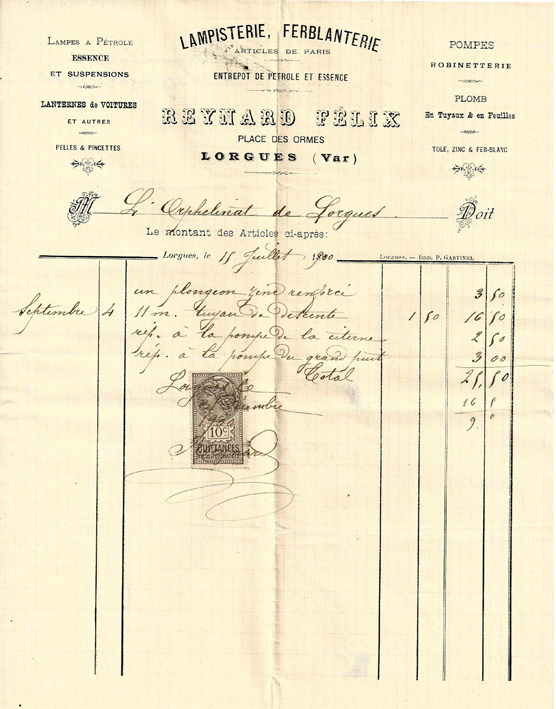 LAMPISTERIE, FERBLANTERIE
ARTICLES DE PARIS
ENTREPOT DE PETROLE ET ESSENCE
REYNARD FÉLIX
PLACE DES ORMES
LORGUES (Var)
LAMPES A PÉTROLE
ESSENCE
ET SUSPENSIONS
LANTERNES de VOITURES
ET AUTRES
PELLES & PINCETTES
POMPES
ROBINETTERIE
PLOMB
En Tuyaux & en Feuilles
TOLE, ZINC & FER-BLANC
M L'Orphelinat de Lorgues. Doit
Le montant des Articles ci-après:
Lorgues, le 15 Juillet 1900
Lorgues. — IMP. P. GASTINEL
un plongeon zinc renforcé 3 50
Septembre 4 11 m. tuyau de descente 1 50 16 50
rép. à la pompe de la citerne 2 50
rép. à la pompe du grand puit 3 00
Total 25, 50
16
9
Lorgues le
10c
QUITTANCES